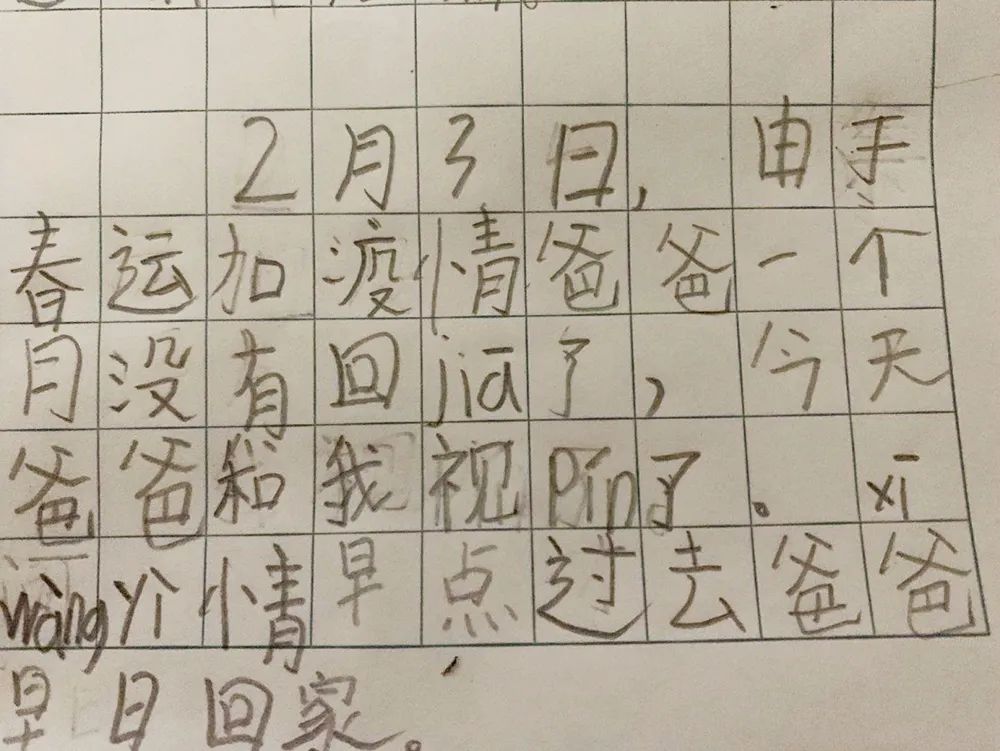 2月3日,由于
春运加疫情爸爸一个
月没有回jiā了,今天
爸爸和我视pín了。xī
wàngyì情早点过去爸爸
早日回家。